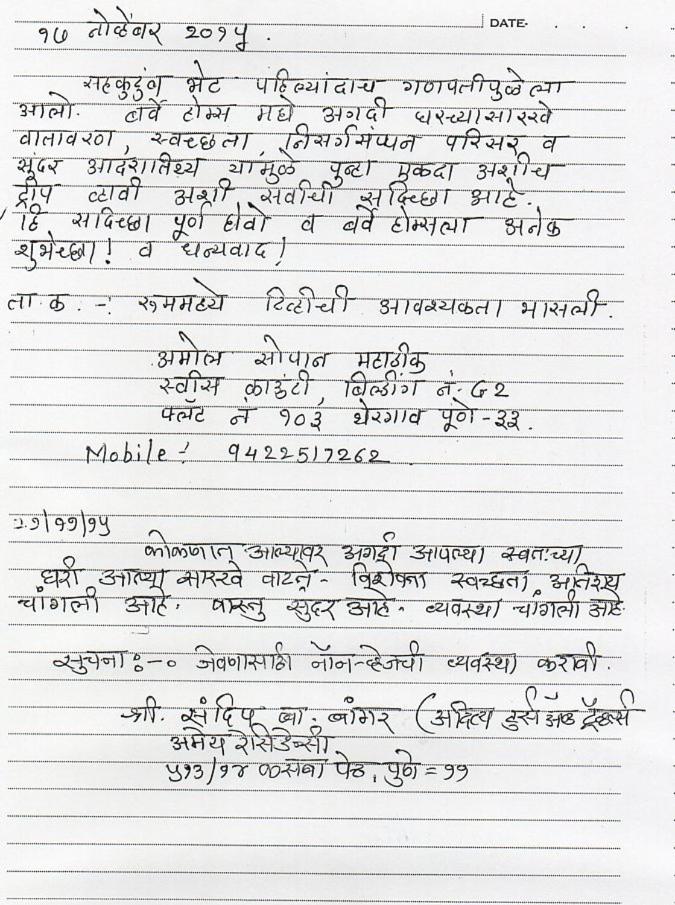 DATE-
१७ नोव्हेंबर २०१५.
सहकुटुंब भेट पहिल्यांदाच गणपतीपुळेला
आलो. बर्वे होम्स मधे अगदी घरच्यासारखे
वातावरण, स्वच्छता, निसर्गसंप्पन परिसर व
सुंदर आदरातिथ्य यामुळे पुन्हा एकदा अशीच
ट्रीप व्हावी अशी सर्वांची सदिच्छा आहे.
हि सदिच्छा पूर्ण होवो व बर्वे होम्सला अनेक
शुभेच्छा! व धन्यवाद!
ता.क. -: रुममध्ये टिव्हीची आवश्यकता भासली.
अमोल सोपान महाडीक
स्वीस काउंटी, बिल्डींग नं. G2
फ्लॅट नं १०३ थेरगाव पूणे-३३.
Mobile:- 9422517262
२१/११/१५
कोकणात आल्यावर अगदी आपल्या स्वतःच्या
घरी आल्या सारखे वाटते- विशेषता स्वच्छता अतिशय
चांगली आहे. वास्तु सुंदर आहे. व्यवस्था चांगली आहे
सुचना :-० जेवणासाठी नॉन-व्हेजची व्यवस्था करावी.
श्री. संदिप बा. बांगर (आदित्य टुर्स अँड ट्रॅव्हर्ल्स
अमेय रेसिडेन्सी
५१३/१४ कसबा पेठ, पुणे = ११